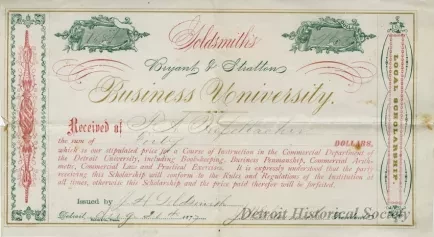 Goldsmith's
Bryant & Stratton
Business University.
LOCAL SCHOLARSHIP.
Received of
the sum of DOLLARS,
which is our stipulated price for a Course of Instruction in the Commercial Department of
the Detroit University, including Book-keeping, Business Penmanship, Commercial Arith-
metic, Commercial Law and Practical Exercises. It is expressly understood that the party
receiving this Scholarship will conform to the Rules and Regulations of the Institution at
all times, otherwise this Scholarship and the price paid therefor will be forfeited.
Issued by J. H. Goldsmith
Detroit, 187
Detroit Historical Society